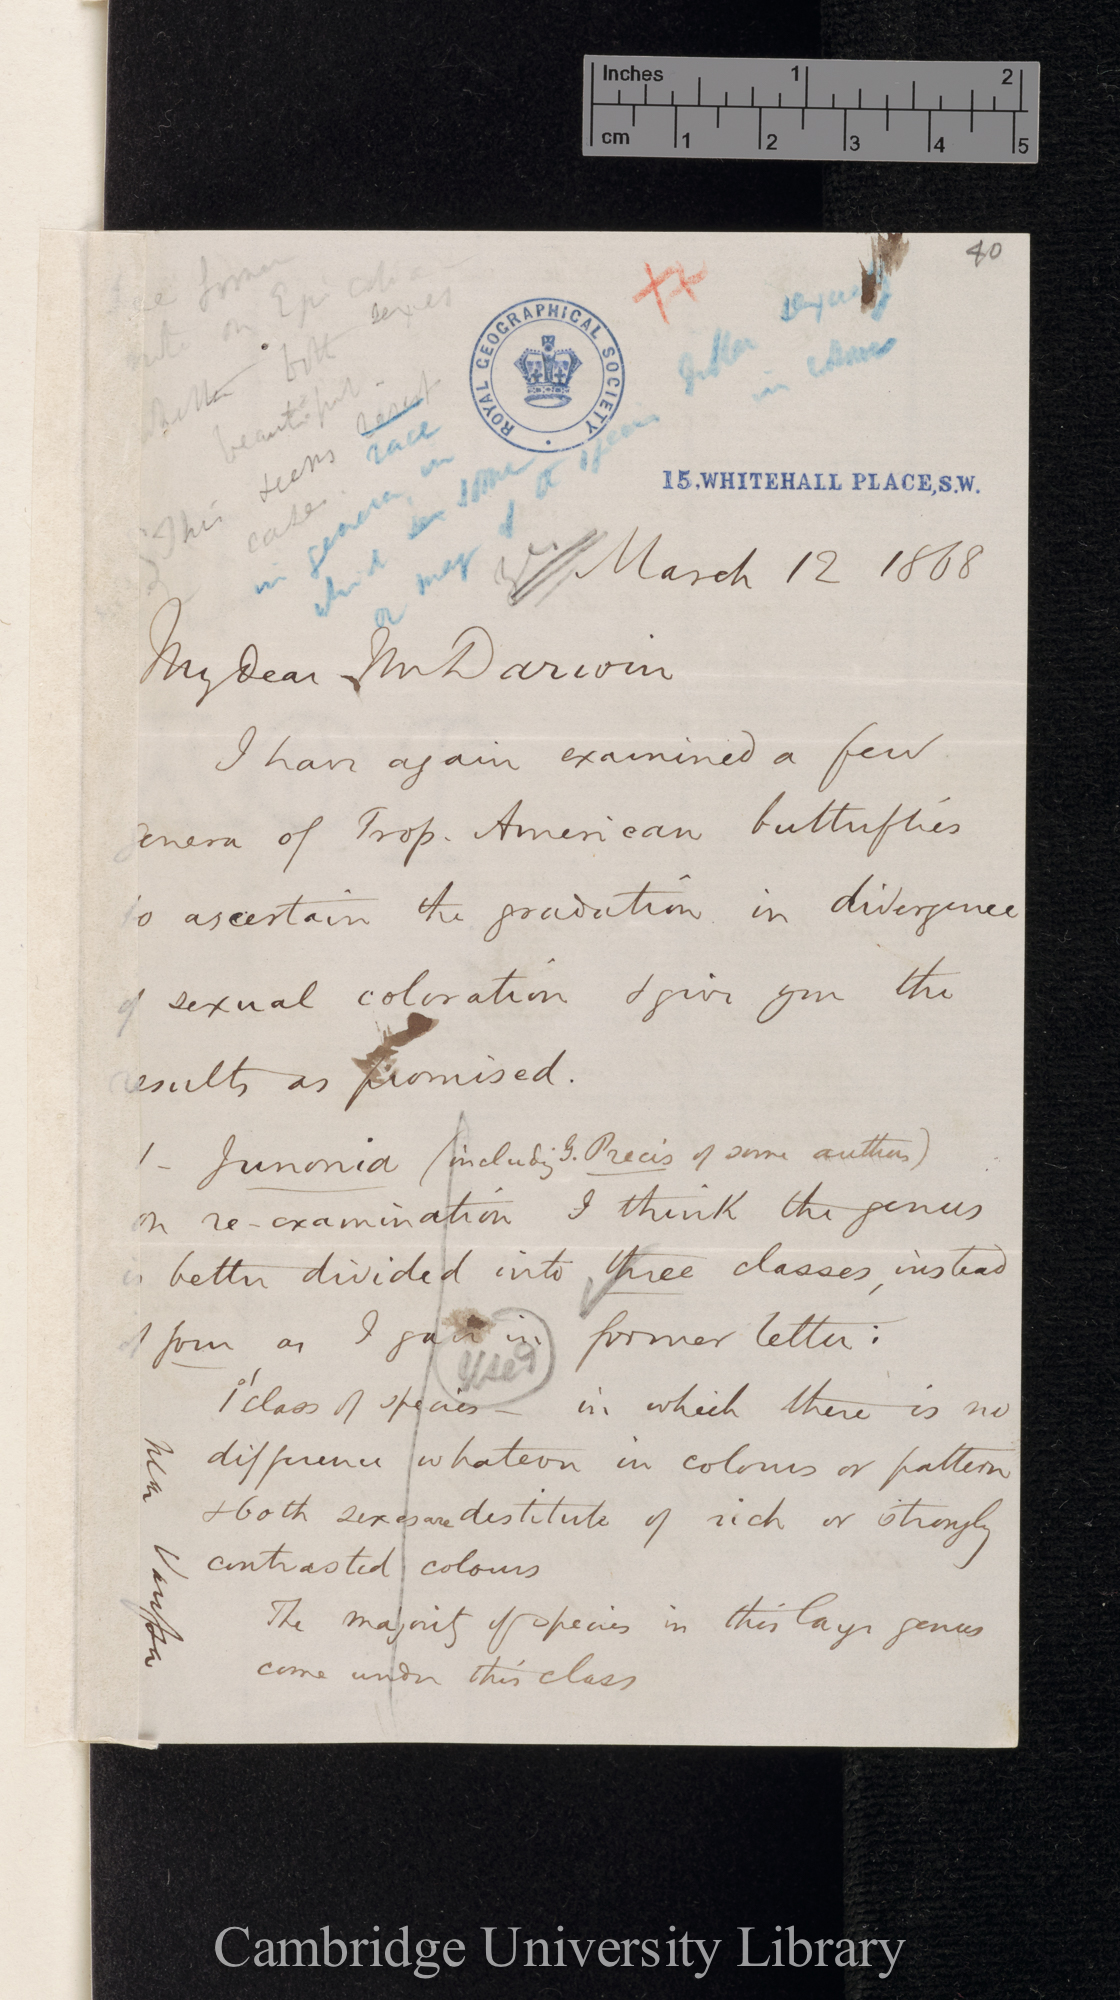 Inches 1 2
cm 1 2 3 4 5
40
ROYAL GEOGRAPHICAL SOCIETY
15, WHITEHALL PLACE, S.W.
both sexes
beautiful
This seems
case.
race
in genera, in
March 12 1868
My dear Mr Darwin
I have again examined a few
genera of Trop. American butterflies
to ascertain the gradation in divergence
of sexual coloration & give you the
results as promised.
1- Junonia (including G. Precis of some authors)
on re-examination I think the genus
is better divided into three classes, instead
of four as I gave in former letter:
Used
1st class of species — in which there is no
difference whatever in colours or pattern
& both sexes are destitute of rich or strongly
contrasted colours
The majority of species in this large genus
come under this class
Cambridge University Library